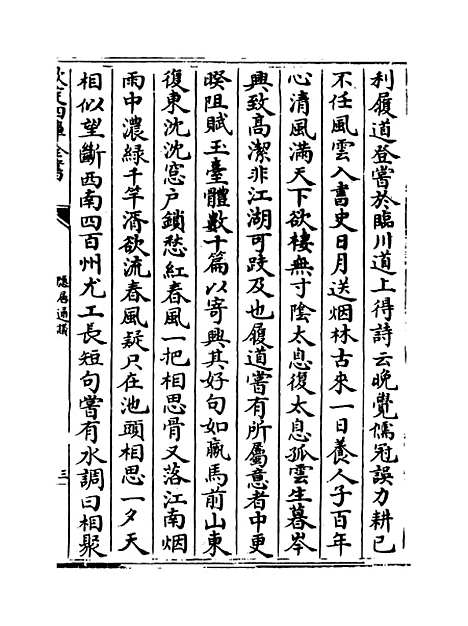 利履道登嘗於臨川道上得詩云晚覺儒冠誤力耕已
不任風雲入書史日月送烟林古來一日養人子百年
心清風滿天下欲棲無寸陰太息復太息孤雲生暮岑
興致高潔非江湖可跂及也履道嘗有所屬意者中更
暌阻賦玉臺體數十篇以寄興其好句如羸馬前山東
復東沈沈窓户鎖愁紅春風一把相思骨又落江南烟
雨中濃緑千竿滑欲流春風疑只在池頭相思一夕天
相似望斷西南四百州尤工長短句嘗有水調曰相聚
欽定四庫全書
隱居通議
三